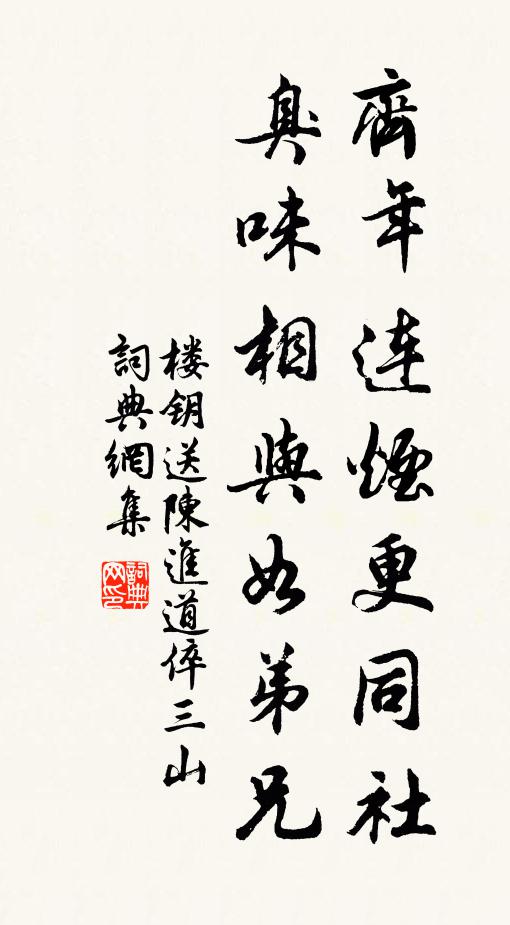 齊年連煙更同社
臭味相與如弟兄
楼钥送陳進道倅三山
詞典網集
詞典
网印